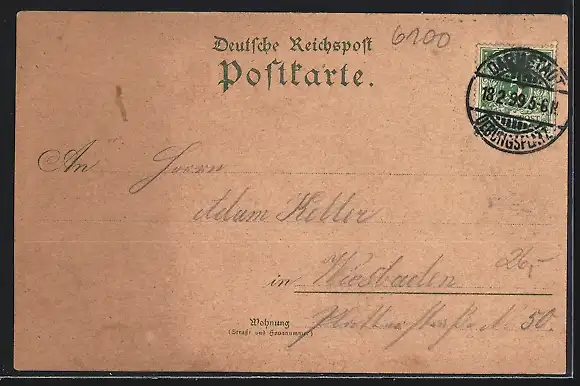 6100
Deutsche Reichspost
Postkarte.
DARMSTADT
18.2.99.5-6N.
ÜBUNGSPLATZ
An Herrn
Adam Keller
26,-
in Wiesbaden
Wohnung
(Straße und Hausnummer)
50.